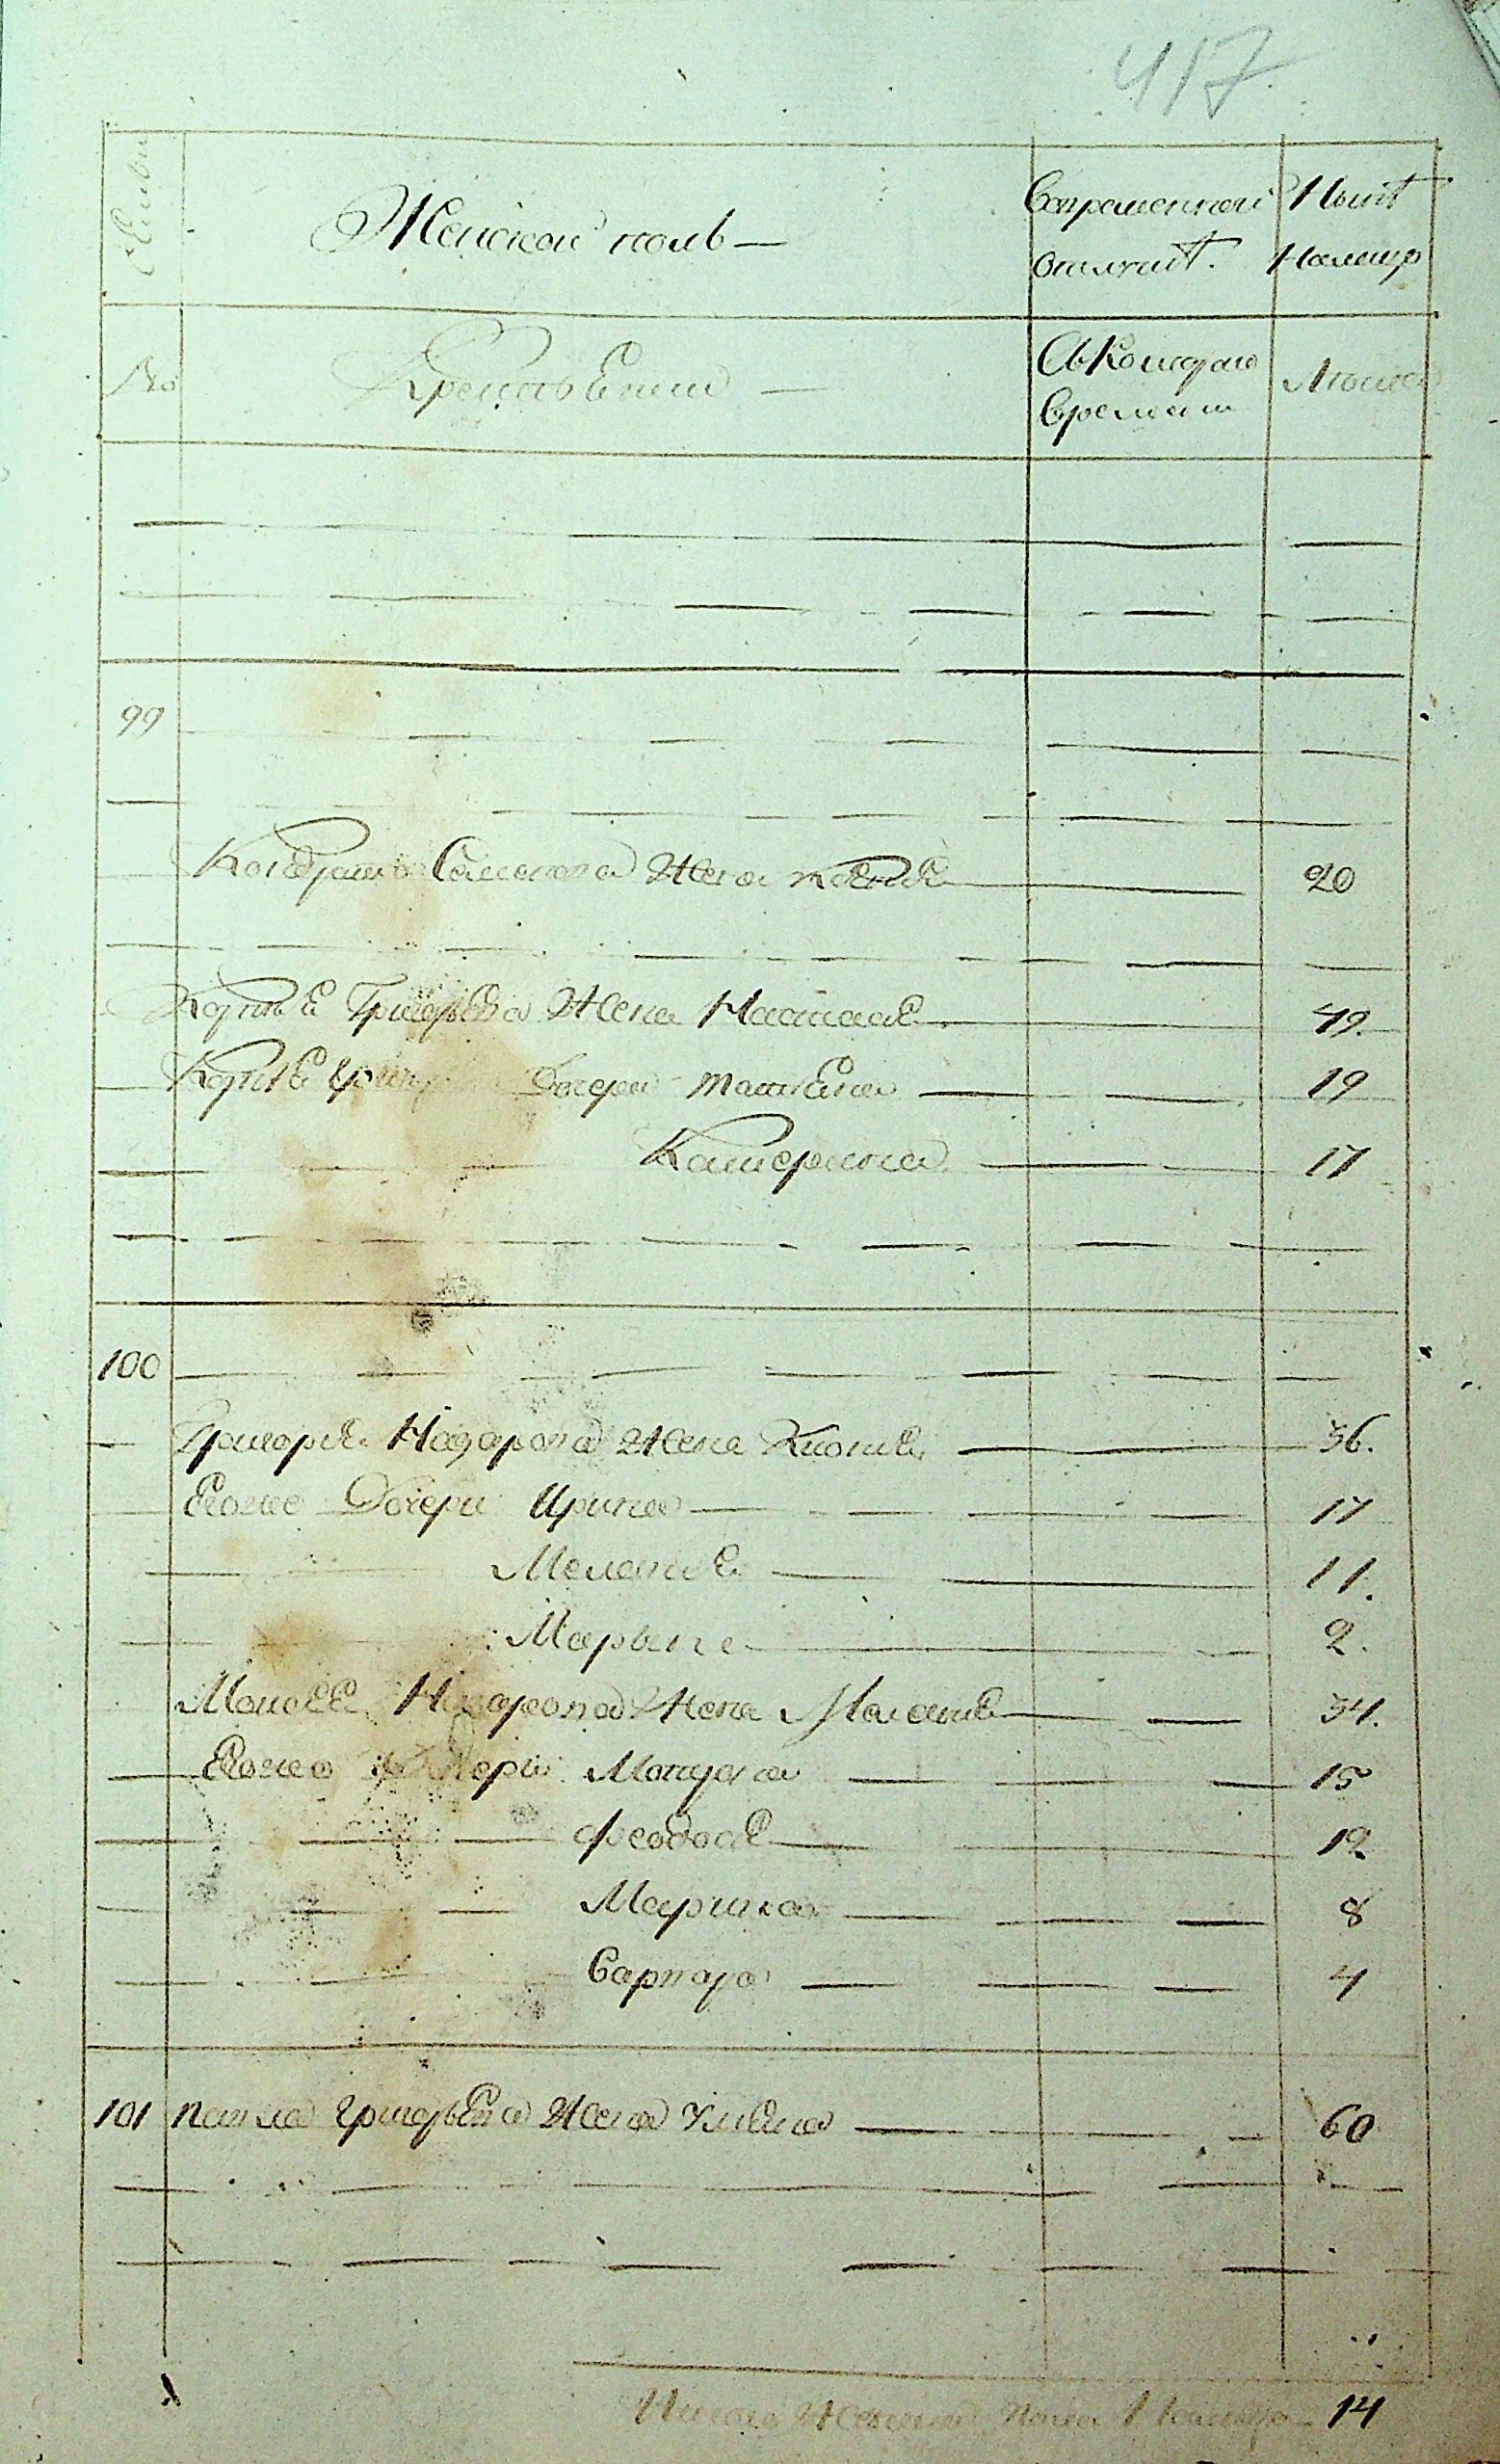 417
Семьи
Женской полъ
Вовременной Нынѣ
отлучкѣ. Налицо
№
Крестьяне
Съ Котораго
времени
Лѣта
99
Кондратия Семенова жена 20
Карпея Григорьева жена Настасья 49.
Карпея Дочери Татьяна 19
Катерина 17
100
Григорья Назарова жена 36.
Еѓоже Дочери Ирина 17
Меланья 11.
Марьяна 2.
Моисея Назарова жена Маланья 34.
Еѓоже Дочери 15
Феодосья 12
Марина 8
Варвара 4
101 Павла Григорьева жена Ульяна 60
Итого женска пола Налицо 14